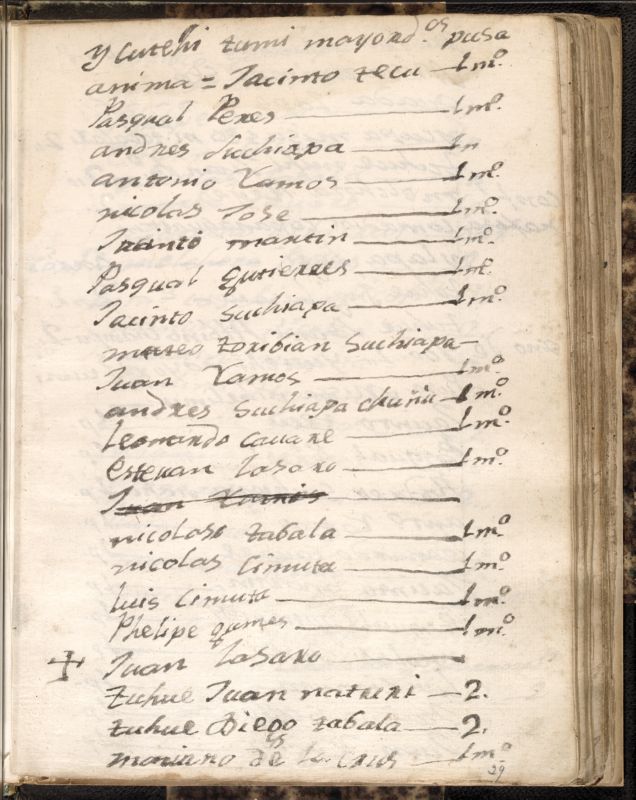 y cutehi tumi mayord.os pusa
anima = Jacinto tecu — 1 m.o
Pasqual Peres — 1 m.o
andres Suchiapa — 1 n
antonio Ramos — 1 m.o
nicolas Jose — 1 m.o
Jacinto martin — 1 m.o
Pasqual gutierres — 1 m.o
Jacinto Suchiapa — 1 m.o
mateo toribian Suchiapa —
Juan Ramos — 1 m.o
andres Suchiapa chuñu — 1 m.o
leonardo cauare — 1 m.o
estevan lasaro — 1 m.o
Juan Ramos —
nicolas tabala — 1 m.o
nicolas Cimuta — 1 m.o
luis Cimuta — 1 m.o
Phelipe gomes — 1 m.o
+ Juan lasaro —
tuhue Juan naturi — 2.
tuhue Diego tabala — 2.
mariano de la Crus — 1 m.o
29